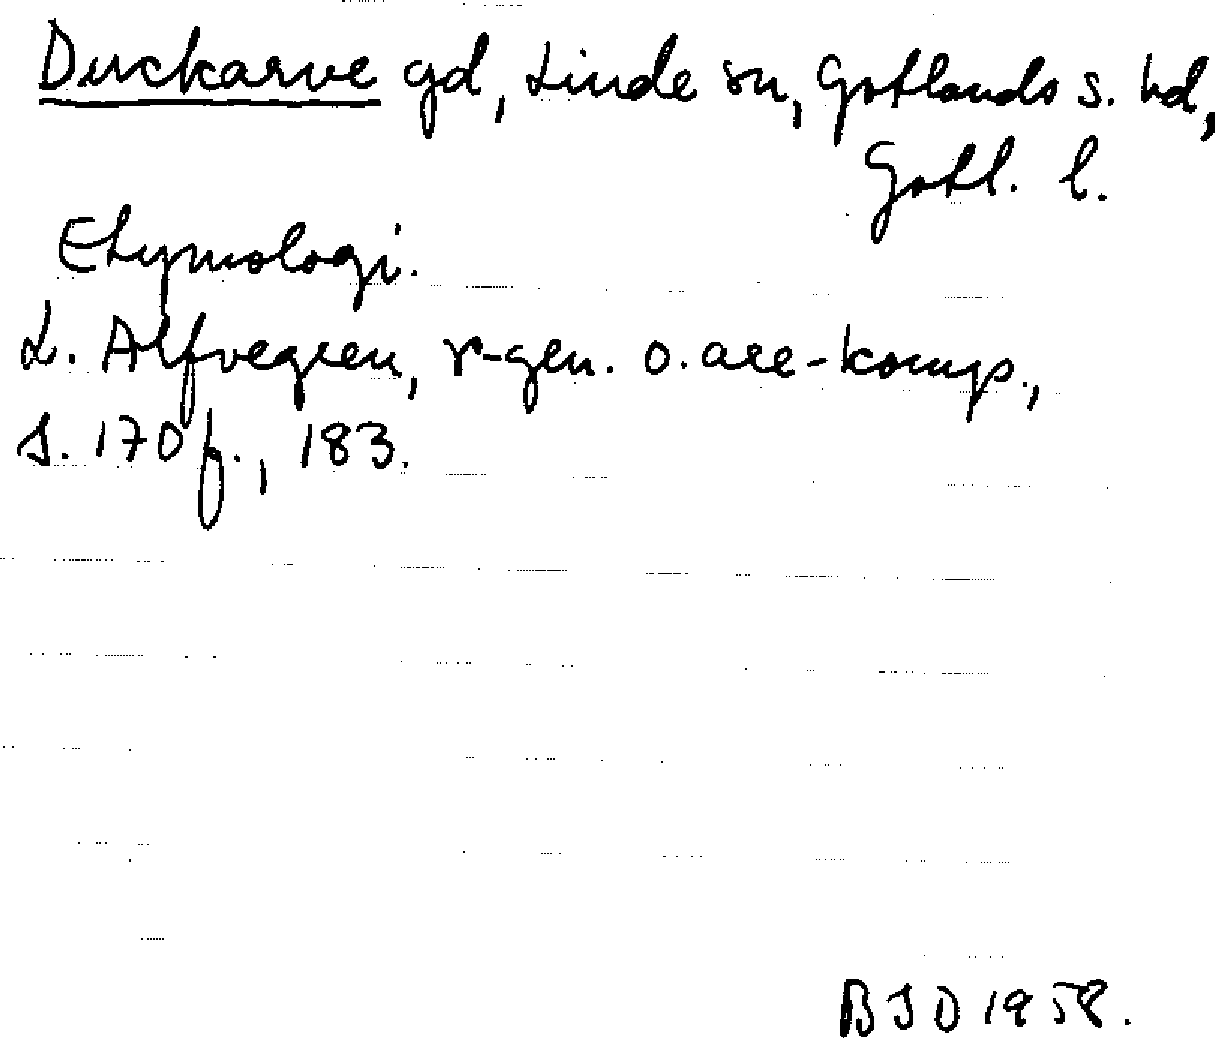 Duckarve gd, Linde sn, Gotlands s. hd,
Gotl. l.
Etymologi.
L. Alfvegren, r-gen. o. are-komp.,
s. 170 f., 183.
BJD 1958.